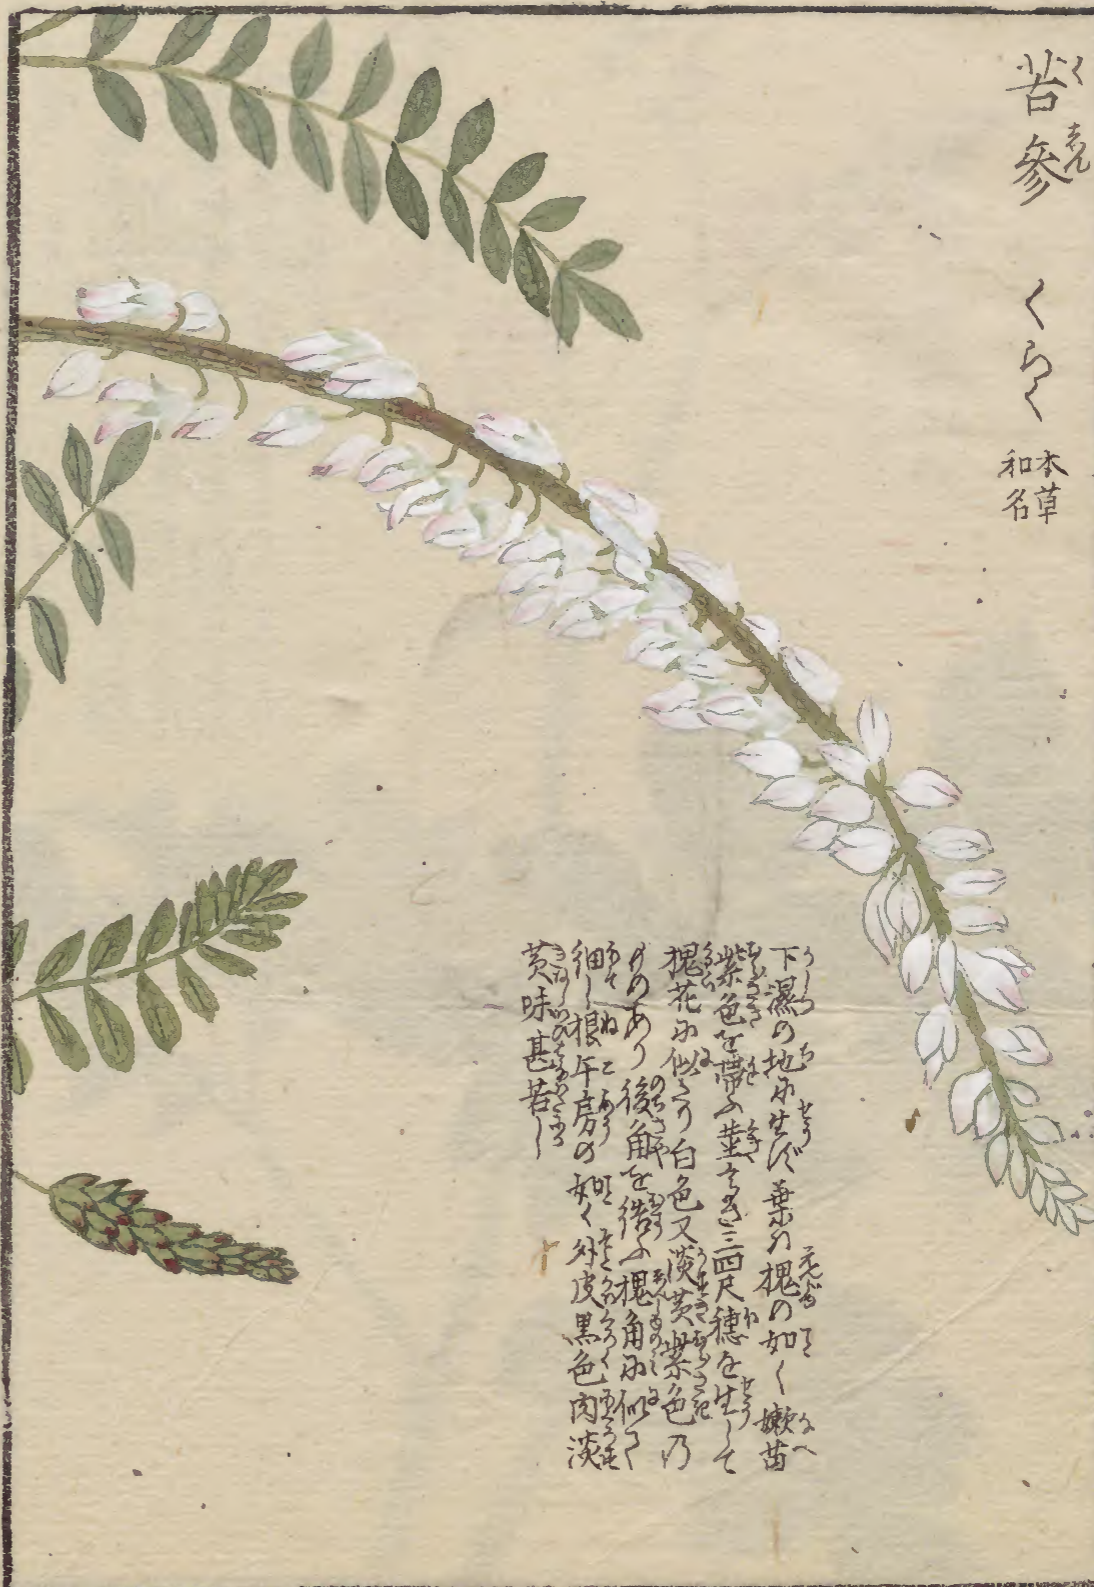 苦參 くらゝ 本草和名
くしん
下濕の地に生ず葉は槐の如く嫩苗
紫色を帯ふ莖高さ三四尺穂を生して
槐花に似たり白色又淡黄紫色の
ものあり後角を結ふ槐角に似て
細し根牛房の如く外皮黒色肉淡
黄味甚苦し